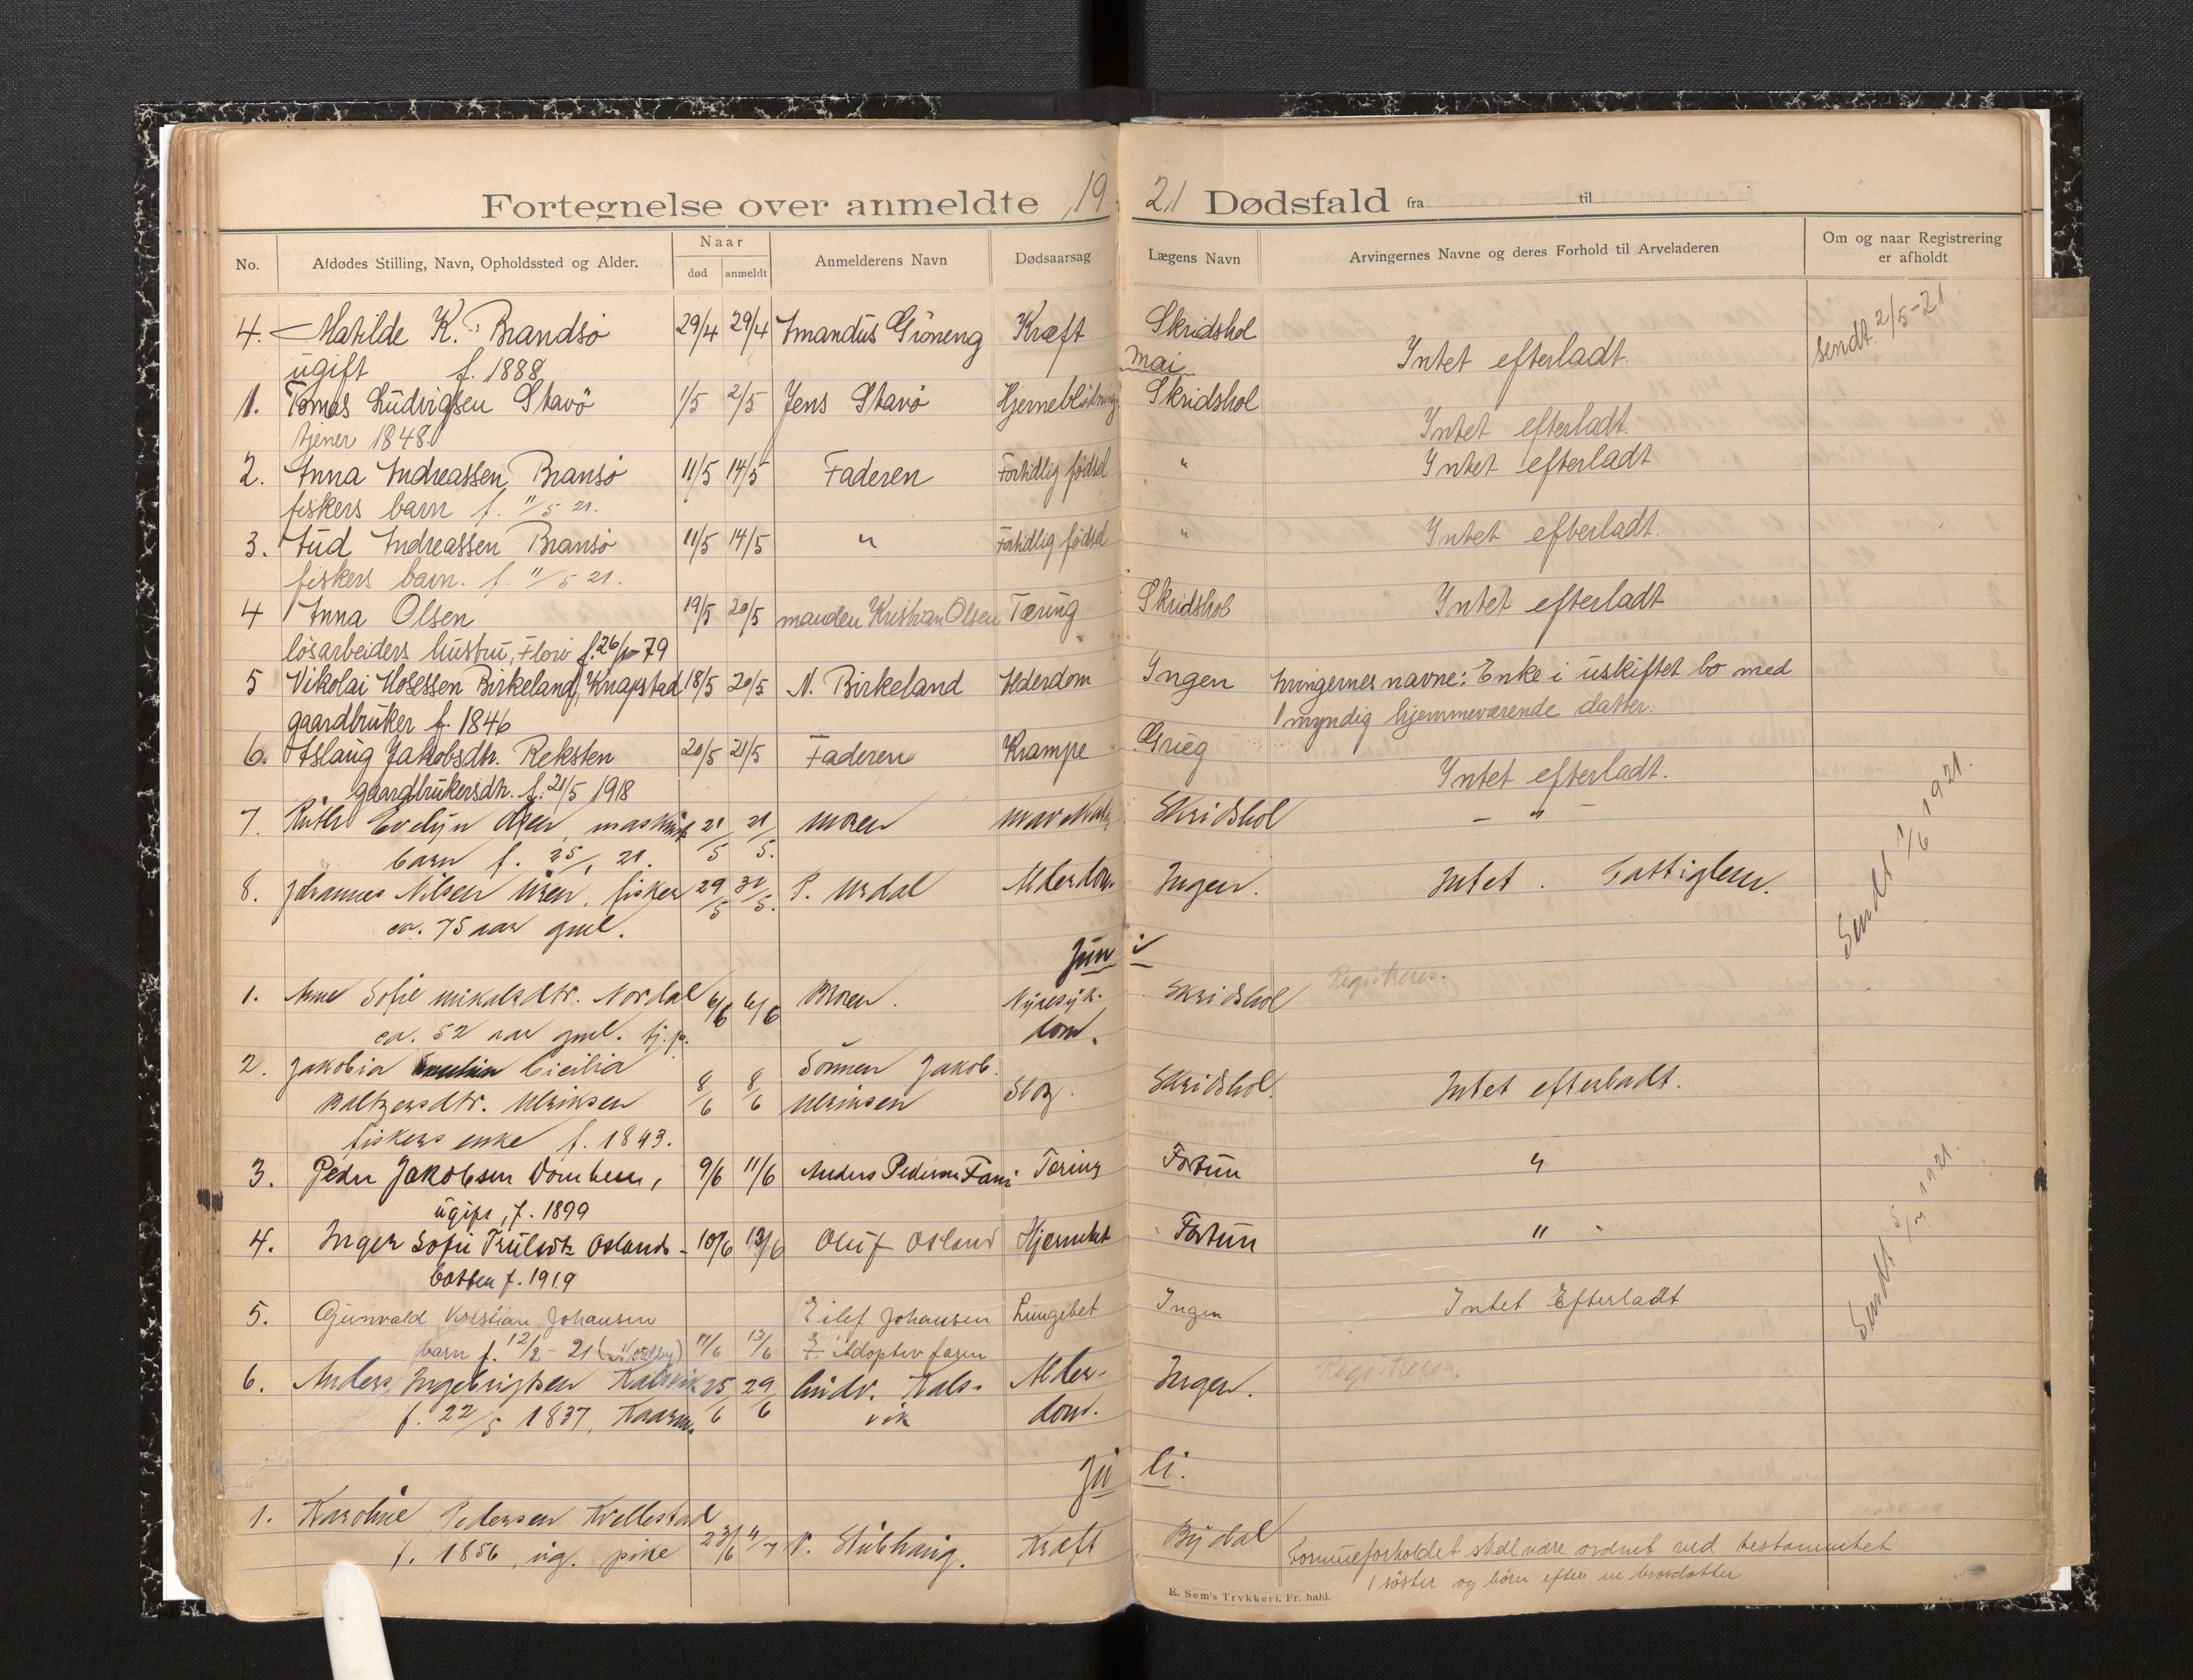 Fortegnelse over anmeldte 1921 Dødsfald fra til
No. Afdødes Stilling, Navn, Opholdssted og Alder. Naar død anmeldt Anmelderens Navn Dødsaarsag Lægens Navn Arvingernes Navne og deres Forhold til Arveladeren Om og naar Registrering er afholdt
4. Matilde K. Brandsö 29/4 29/4 Amandus Gröneng Kræft Skridshol Intet efterladt. sendt 2/5-21
ugift f. 1888
mai
1. Tomas Ludvigsen Stavö 1/5 2/5 Jens Stavö Hjerneblödning Skridshol Intet efterladt.
tjener 1848.
2. Anna Andreassen Bransö 11/5 14/5 Faderen Fortidlig födsel " Intet efterladt
fiskers barn f. 11/5 21.
3. Aud Andreassen Bransö 11/5 14/5 " Fortidlig födsel " Intet efterladt.
fiskers barn. f. 11/5 21.
4 Anna Olsen 19/5 20/5 manden Kristian Olsen Tæring Skridshol Intet efterladt
lösarbeiders hustru, Florö f. 79
5 Nikolai Mosessen Birkeland, Knapstad 18/5 20/5 N. Birkeland Alderdom Ingen Arvingernes navne: Enke i uskiftet bo med
gaardbruker f. 1846 1 myndig hjemmeværende datter.
6. Aslaug Jakobsdtr. Reksten 20/5 21/5 Faderen Krampe Grieg Intet efterladt.
gaardbrukersdtr. f. 21/5 1918
7. Ruth Evelyn Olsen, 21/5 21/5. Moren Skridshol - " -
barn f. 25/1 21.
8. Johannes Nilsen Uren, fisker 29/5 31/5. P. Urdal Alderdom. Ingen. Intet. Fattiglem. Sendt 1/6 1921.
ca. 75 aar gml.
Juni
1. Anne Sofie Mikalsdtr. Nordal 6/6 6/6 Broren. Nyresyk- Skridshol Registreres.
ca. 52 aar gml. tj.p. dom.
2. Jakobia Cicilia Sönnen Jakob
Baltzersdtr. Ulriksen 8/6 8/6 Ulriksen Slag. Skridshol. Intet efterladt.
fiskers enke f. 1843.
3. Peder Jakobsen 9/6 11/6 Anders Pedersen Tæring Fortun "
ugift, f. 1899
4. Inger Sofie Trulsdtr Oslands- 10/6 13/6 Oluf Osland Fortun "
botten f. 1919
5. Gunvald Kristian Johansen Eilef Johansen Lungebet Ingen Intet Efterladt Sendt 5/7 1921.
barn f. 12/2-21 (Nordby) 11/6 13/6 Adoptiv faren
6. Anders Ingebrigtsen Kalsvik 25/6 29/6 Andr. Kals- Alder- Ingen. Registreres.
f. 22/5 1837, Kaarm. vik dom.
Juli.
1. Karoline Pedersen Kvellestad
f. 1856, ug. pike 4/7 P. Stubhaug. Kræft Bydal Formueforholdet skal være ordnet ved testamentet
1 söster og börn efter en brordatter
E. Sem's Trykkeri, Fr.hald.